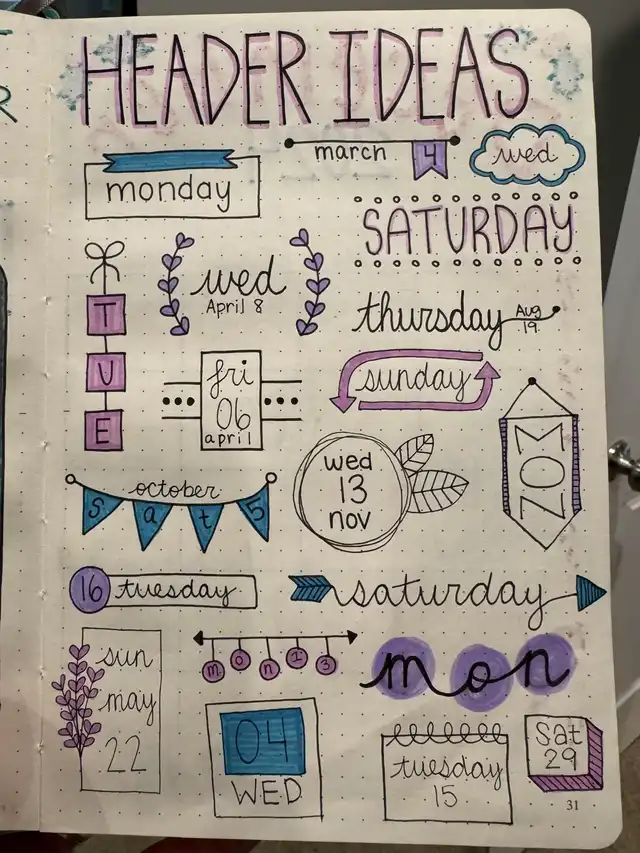 HEADER IDEAS
march 4
wed
monday
SATURDAY
T
U
E
wed
April 8
thursday Aug
19
fri
06
april
sunday
MON
october
sat 5
wed
13
nov
16 tuesday
saturday
sun
may
22
mon 13
mon
04
WED
tuesday
15
Sat
29
31